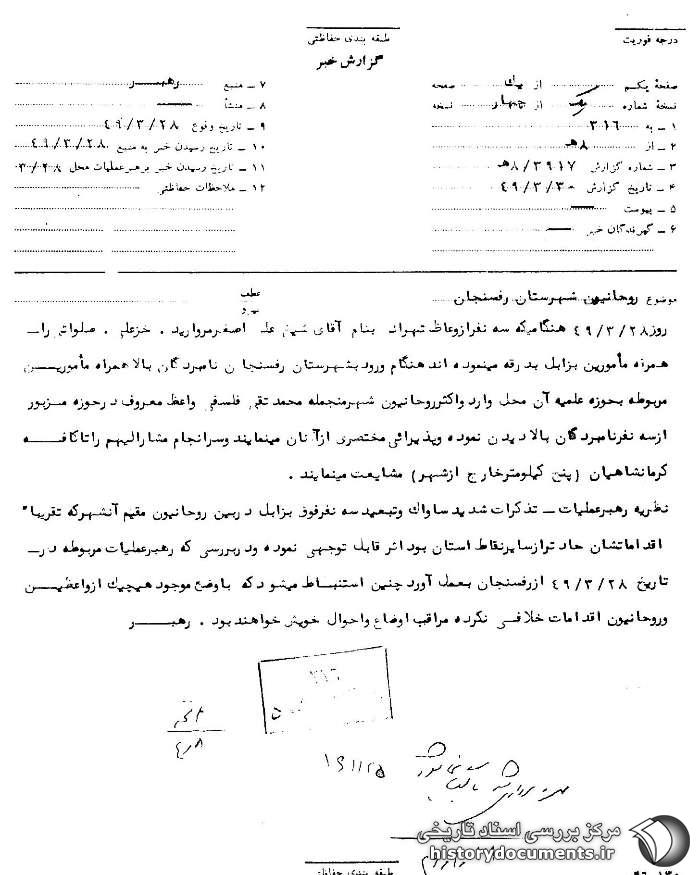 درجه فوریت
طبقه بندی حفاظتی
گزارش خبر
صفحهٔ یکم از یك صفحه
نسخهٔ شماره یك از چهار نسخه
۱ ـ به ۳۱۶
۲ ـ از ۸هـ
۳ ـ شماره گزارش ۳۹۱۷/۸هـ
۴ ـ تاریخ گزارش ۴۹/۳/۳۰
۵ ـ پیوست
۶ ـ گیرندگان خبر
۷ ـ منبع رهبـــر
۸ ـ منشأ
۹ ـ تاریخ وقوع ۴۹/۳/۲۸
۱۰ ـ تاریخ رسیدن خبر به منبع ۴۹/۳/۲۸
۱۱ ـ تاریخ رسیدن خبر برهبرعملیات محل ۳/۲۸
۱۲ ـ ملاحظات حفاظتی
موضوع روحانیون شهرستان رفسنجان
عطف
پیرو
روز ۴۹/۳/۲۸ هنگامیکه سه نفرازوعاظ تهران بنام آقای شیخ علی اصغرمروارید . خزعلی . صلواتی راـ
همراه مأمورین بزابل بدرقه مینموده اند هنگام ورود بشهرستان رفسنجان نامبردگان بالا همراه مأموریـن
مربوطه بحوزه علمیه آن محل وارد واکثرروحانیون شهرمنجمله محمد تقی فلسفی واعظ معروف درحوزه مـزبور
ازسه نفرنامبردگان بالا دیدن نموده وپذیرائی مختصری ازآنان مینمایند وسرانجام مشارالیهم راتاکافـــه
کرمانشاهیان (پنج کیلومترخارج ازشهر) مشایعت مینمایند .
نظریه رهبرعملیات ـ تذکرات شدید ساواك وتبعید سه نفرفوق بزابل دربین روحانیون مقیم آنشهرکه تقریبا"
اقداماتشان حاد ترازسایرنقاط استان بود اثر قابل توجهی نموده ودربررسی که رهبرعملیات مربوطه درـ
تاریخ ۴۹/۳/۲۸ ازرفسنجان بعمل آورد چنین استنباط میشود که باوضع موجود هیچیك ازواعظیـن
وروحانیون اقدامات خلافی نکرده مراقب اوضاع واحوال خویش خواهند بود . رهبــــر
۳۱۶
۴/۸
۱۶۱۱۲۵
مرکز بررسی اسناد تاریخی
historydocuments.ir
طبقه بندی حفاظتی